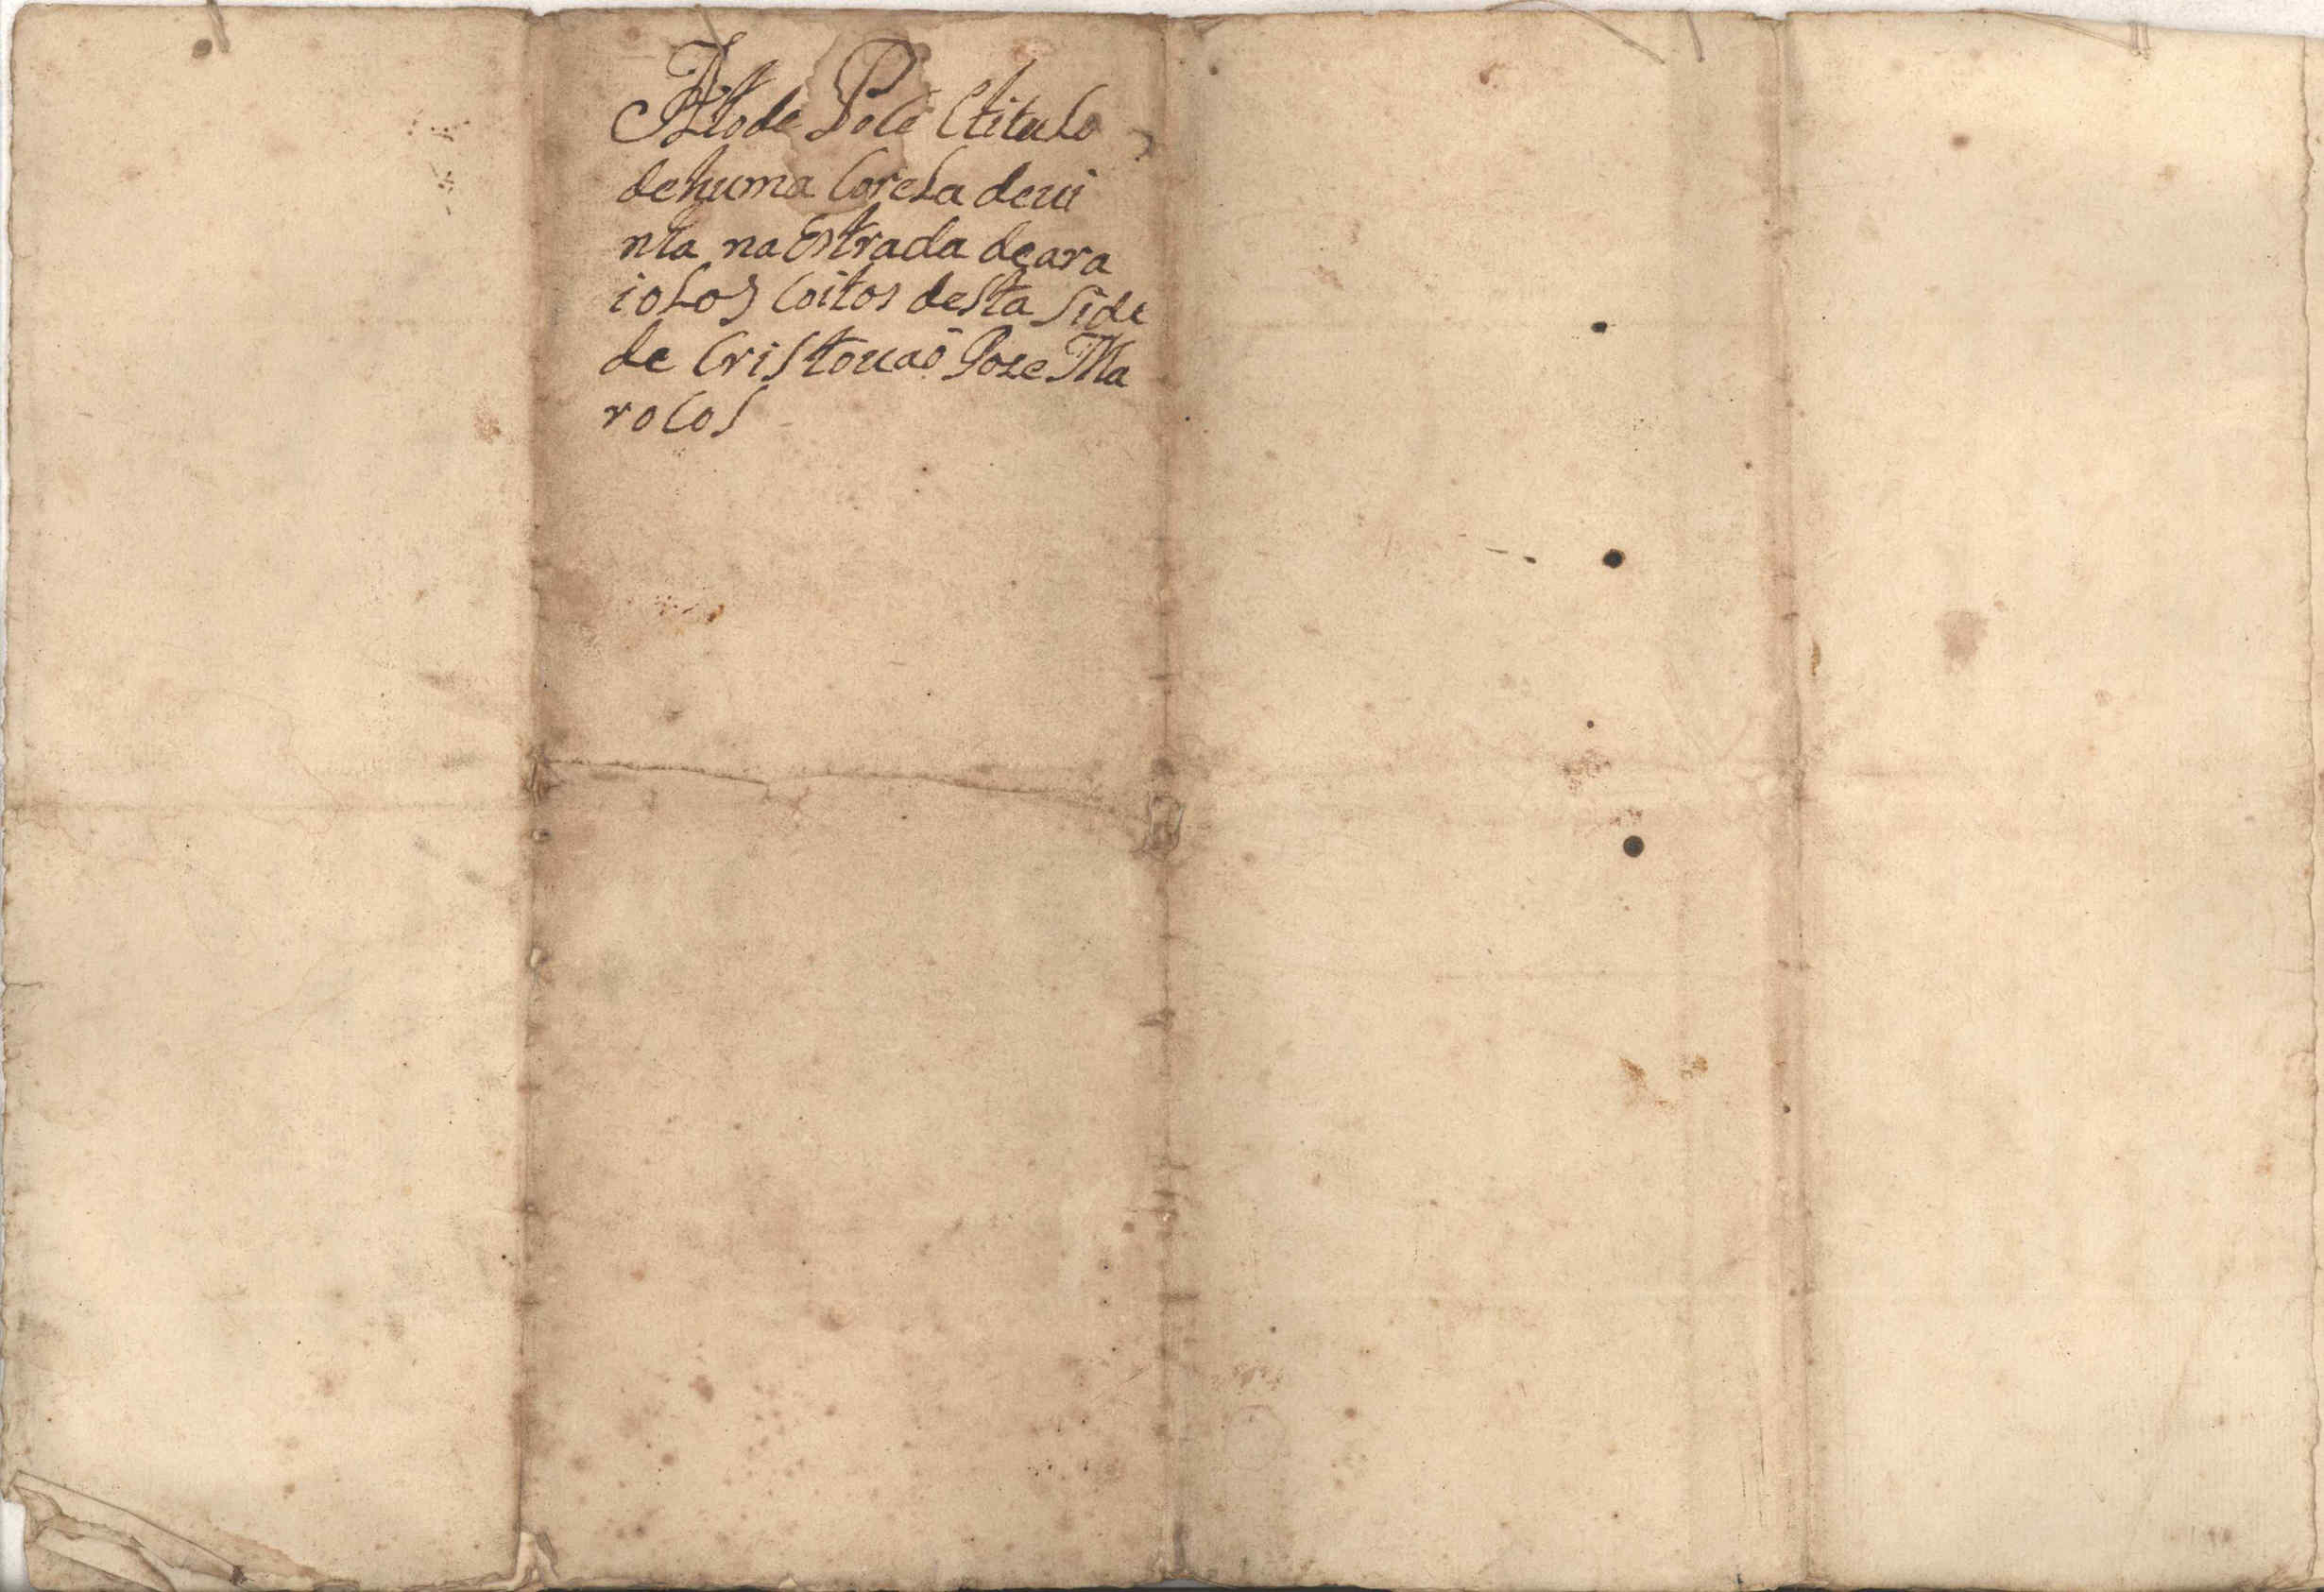 Auto de Pose Etitulo
dehuma Corela deui
nha na Estrada deara
iolos Coitos desta Side
de Cristouaõ Joze Ma
rocos